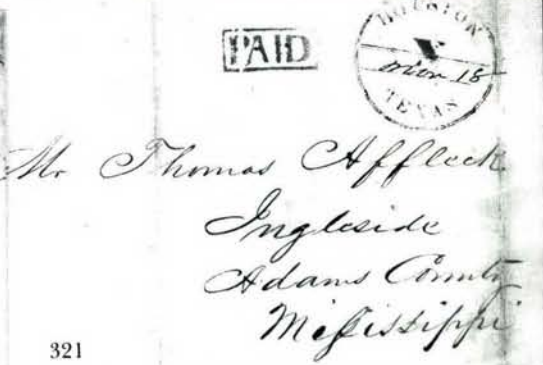 PAID
HOUSTON
Nov 18
TEXAS
Mr Thomas Affleck
Ingleside
Adams County
Missississippi
321